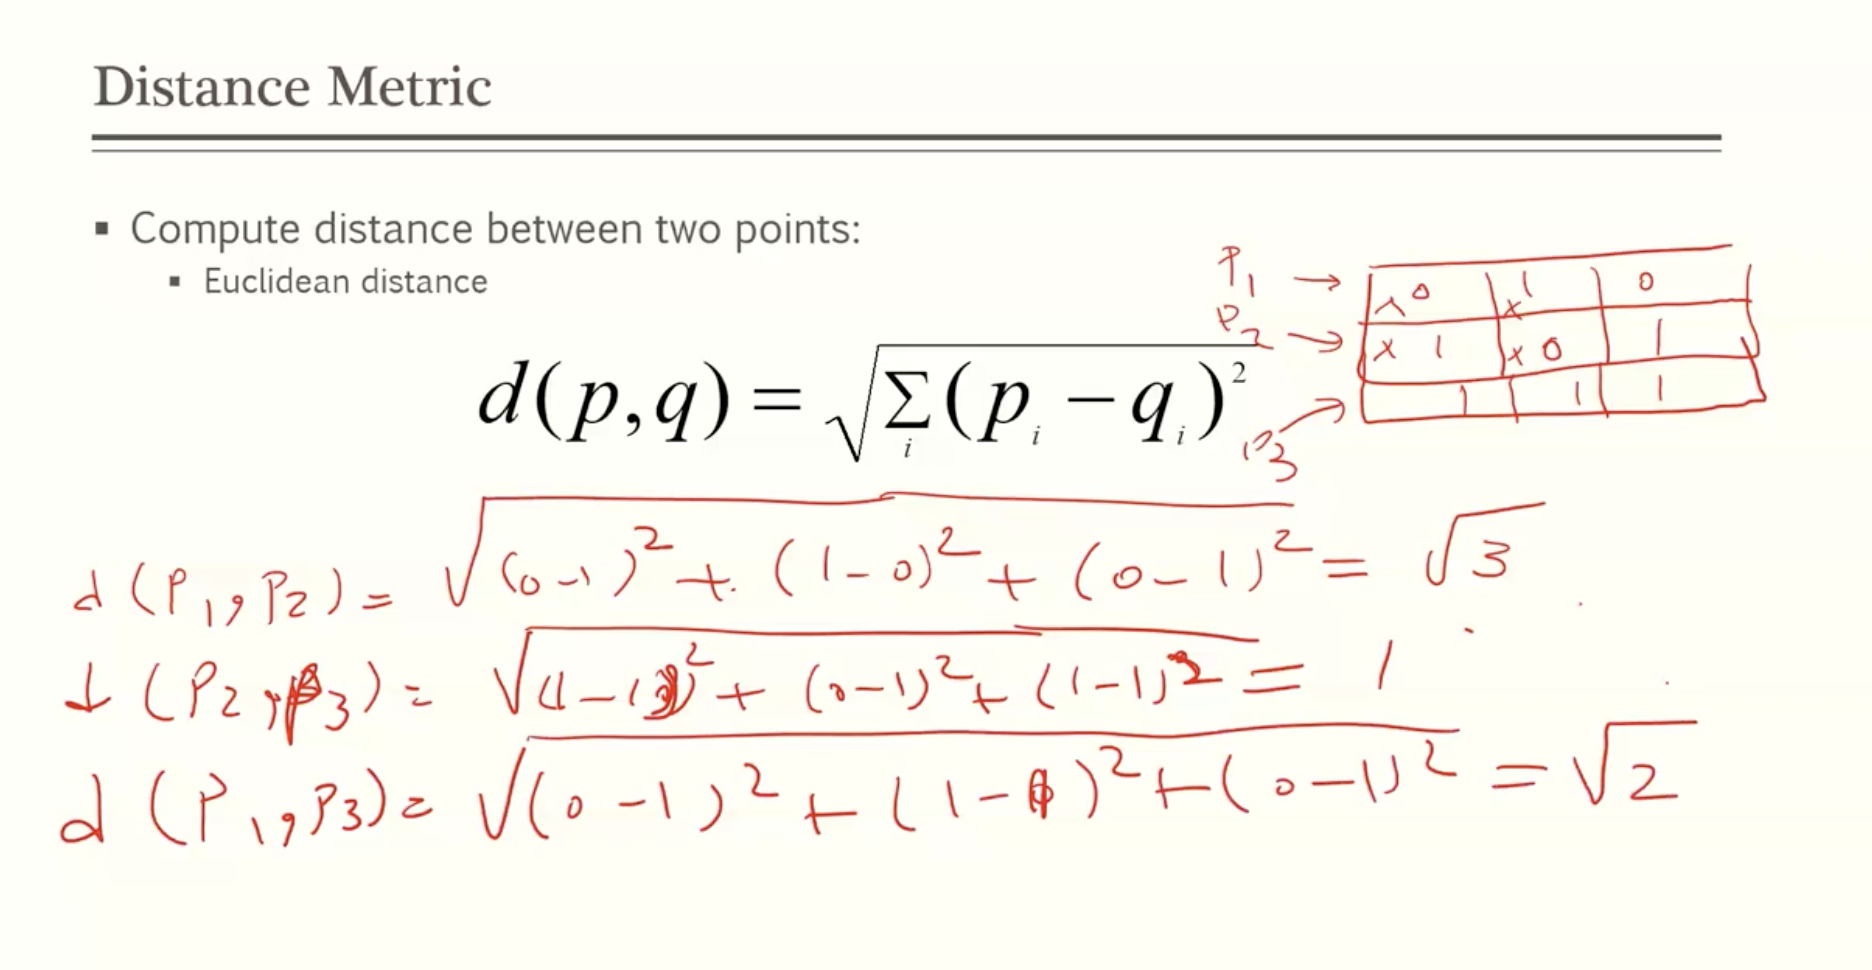 Distance Metric
▪ Compute distance between two points:
▪ Euclidean distance
P₁ → x 0 | x 1 | 0
P₂ → x 1 | x 0 | 1
P₃ → 1 | 1 | 1
d(p,q) = √Σᵢ(pᵢ − qᵢ)²
d(P₁,P₂) = √(0-1)² + (1-0)² + (0-1)² = √3
d(P₂,P₃) = √(1-1)² + (0-1)² + (1-1)² = 1
d(P₁,P₃) = √(0-1)² + (1-1)² + (0-1)² = √2